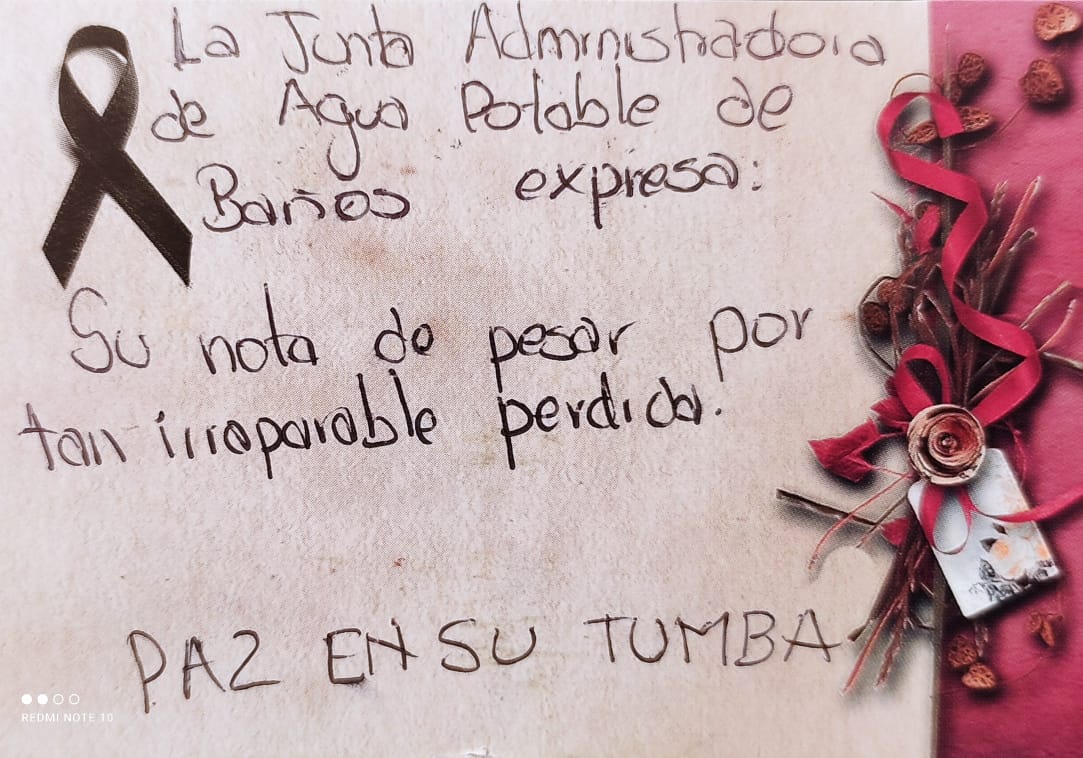 La Junta Administradora
de Agua Potable de
Baños expresa:
Su nota de pesar por
tan irreparable perdida.
PAZ EN SU TUMBA
REDMI NOTE 10